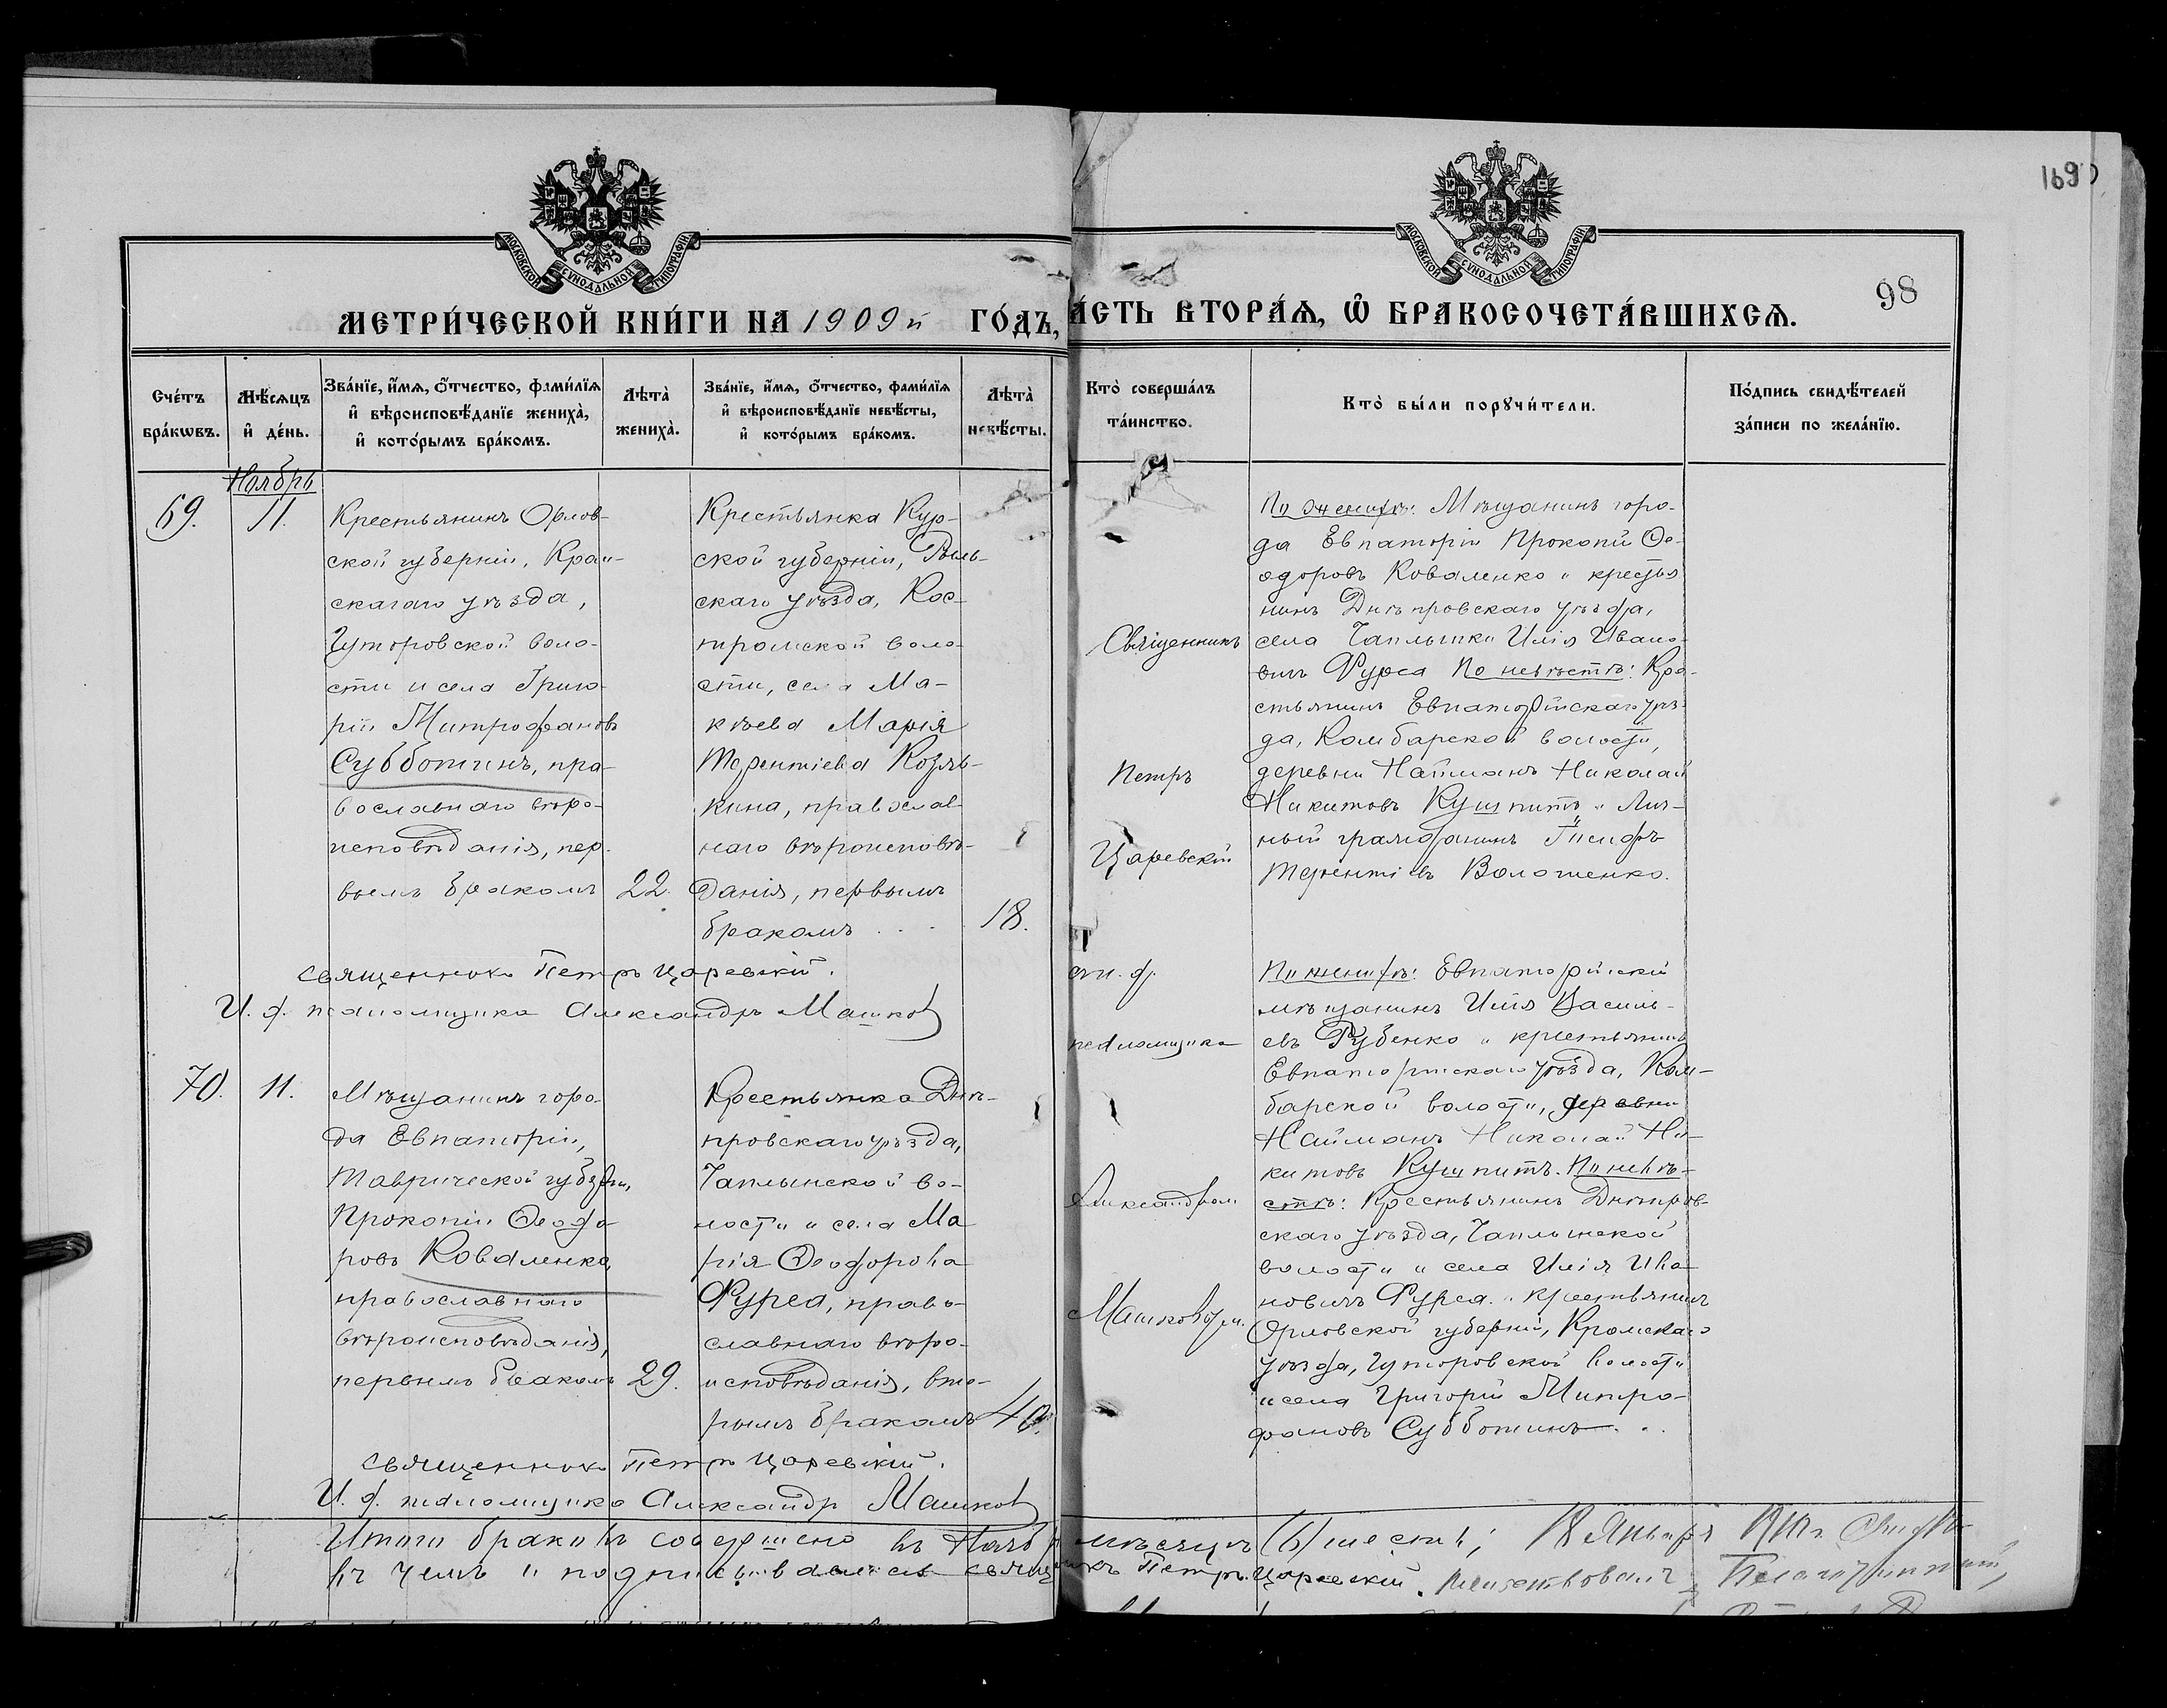 1690
98
МОСКОВСКОЙ СѴНОДАЛЬНОЙ ТИПОГРАФІИ
МОСКОВСКОЙ СѴНОДАЛЬНОЙ ТИПОГРАФІИ
МЕТРИ́ЧЕСКОЙ КНИ́ГИ НА 1909й ГО́ДЪ,
А́СТЬ ВТОРА́Ѧ, Ѽ БРАКОСОЧЕТА́ВШИХСѦ.
Сче́тъ бра́кѡвъ.
Мѣ́сѧцъ и҆ де́нь.
Зва́нїе, и҆́мѧ, ѻ҆́тчество, фами́лїѧ
и҆ вѣроисповѣ́данїе жениха̀,
и҆ кото́рымъ бра́комъ.
Лѣта̀ жениха̀.
Зва́нїе, и҆́мѧ, ѻ҆́тчество, фами́лїѧ
и҆ вѣроисповѣ́данїе невѣ́сты,
и҆ кото́рымъ бра́комъ.
Лѣта̀ невѣ́сты.
Кто̀ соверша́лъ та́инство.
Кто̀ бы́ли порꙋчи́тели.
По́дпись свидѣ́телей
за́писи по жела́нїю.
Ноябрь
69.
11.
Крестьянинъ Орлов-
ской губерніи, Крам-
скагаго уѣзда,
Гуторовской воло-
сти и села Григо-
рій Митрофановъ
Субботинъ, пра-
вославнаго вѣро-
исповѣданія, пер-
вымъ бракомъ
22.
Крестьянка Кур-
ской губерніи, Рыль-
скаго уѣзда, Кос-
тромской воло-
сти, села Ма-
кѣева Марія
Терентіева Козяв-
кина, православ-
наго вѣроисповѣ-
данія, первымъ
бракомъ . . .
18.
Священникъ
Петръ
Царевскій
По женихѣ: Мѣщанинъ горо-
да Евпаторіи Прокопій Ѳе-
одоровъ Коваленко и крестья
нинъ Днѣпровскаго уѣзда,
села Чаплынки Илія Ивано-
вичъ Фурса По невѣстѣ: Кре-
стьянинъ Евпаторійскаго уѣз-
да, Камбарской волости,
деревни Найманъ Николай
Никитовъ Кушпитъ и Лич-
ный гражданинъ
Терентіевъ Волошенко.
священникъ Петръ Царевскій.
И. д. псаломщика Александръ Машков
70.
11.
Мѣщанинъ горо-
да Евпаторіи,
Таврической губерніи,
Прокопій Ѳеодо-
ровъ Коваленко,
православнаго
вѣроисповѣданія,
первымъ бракомъ
29.
Крестьянка Днѣ-
провскаго уѣзда,
Чаплынской во-
лости и села Ма
рія Ѳеодорова
Фурса, право-
славнаго вѣро-
исповѣданія, вто-
рымъ бракомъ
40.
псаломщика
Александром
Машковым.
По женихѣ: Евпаторійскій
мѣщанинъ Илія Василь-
евъ Рубенко и крестьянинъ
Евпаторійскаго уѣзда, Кам-
барской волости, деревни
Найманъ Николай Ни-
китовъ Кушпитъ. По невѣ-
стѣ: Крестьянинъ Днѣпров-
скаго уѣзда, Чаплынской
волости и села Илія Ива
новичъ Фурса и крестьянинъ
Орловской губерніи, Кромскаго
уѣзда, Гуторовской волости
и села Григорій Митро-
фановъ Субботинъ . .
священникъ Петръ Царевскій.
И. д. псаломщика Александр Машков
Итого браковъ совершено въ Нояб мѣсяцѣ (6) шесть;
въ чемъ и подписываемся свящ никъ Петръ Царевскій.
18 Января